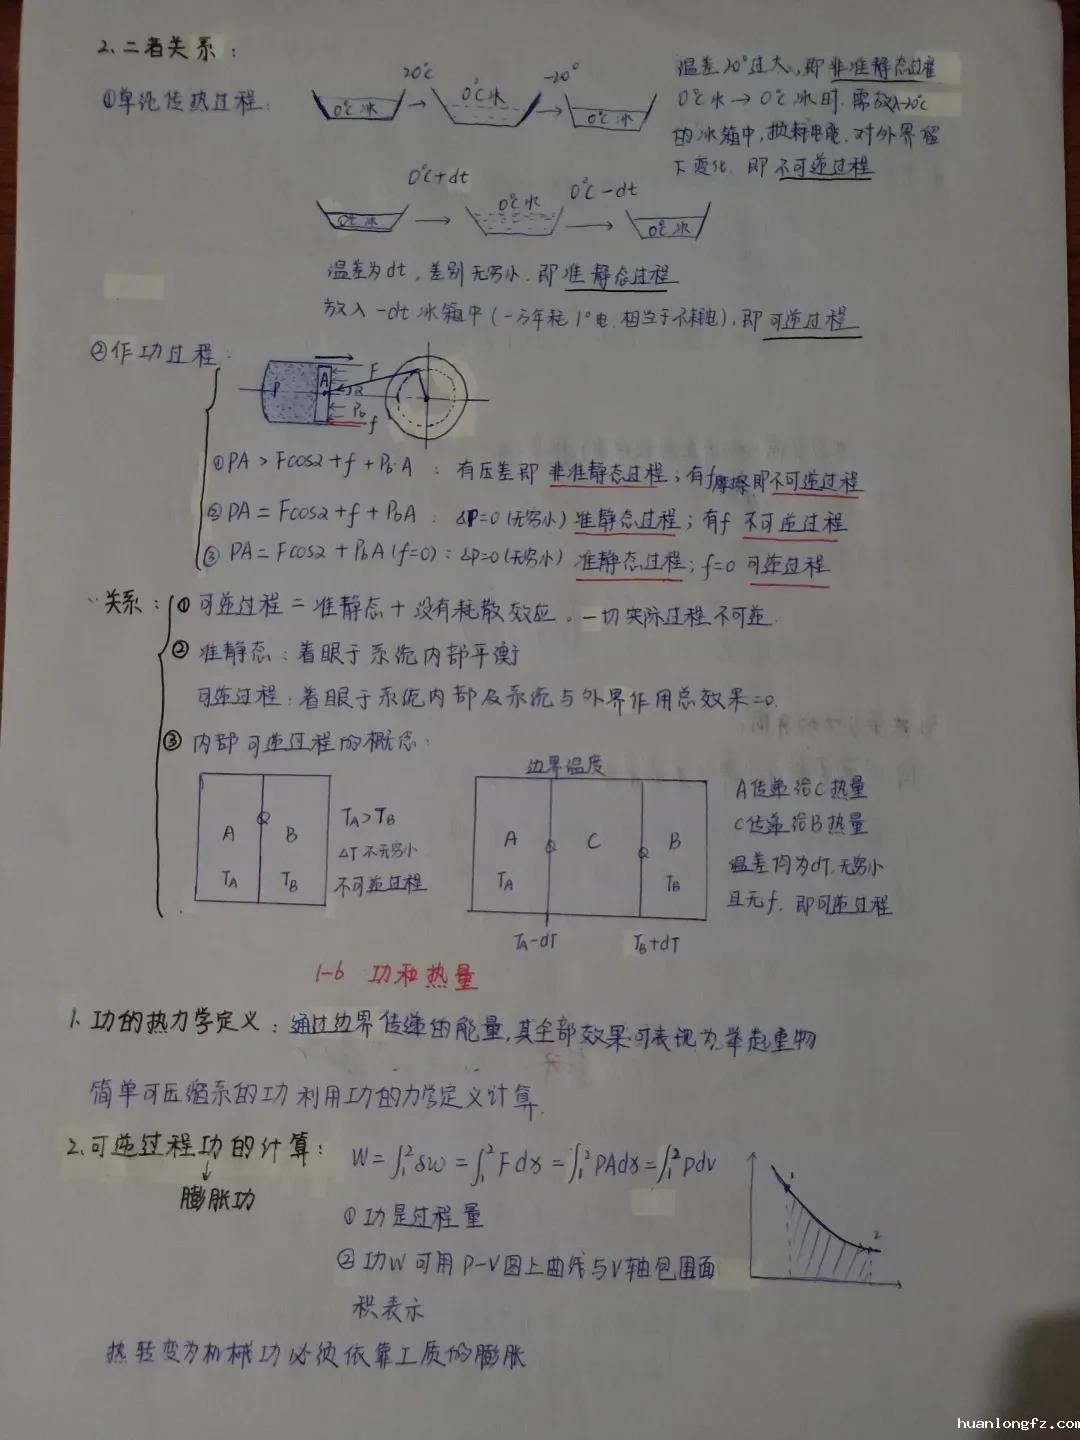 2、二者关系：
①单纯传热过程：
20℃
-20°
0℃冰
0℃水
0℃冰
温差20°过大，即非准静态过程
0℃水→0℃冰时，需放入-20℃
的冰箱中，损耗电能，对外界留
下变化，即不可逆过程
0℃+dt
0℃-dt
0℃冰
0℃水
0℃冰
温差为dt，差别无穷小，即准静态过程
放入-dt冰箱中(一万年耗1°电，相当于不耗电)，即可逆过程
②作功过程：
P
A
F
α
P₀
f
①PA>Fcosα+f+P₀·A：有压差即非准静态过程；有f摩擦即不可逆过程
②PA=Fcosα+f+P₀A：△P=0(无穷小)准静态过程；有f 不可逆过程
③PA=Fcosα+P₀A(f=0)：△P=0(无穷小)准静态过程；f=0 可逆过程
∴关系：①可逆过程=准静态+没有耗散效应。一切实际过程不可逆.
②准静态：着眼于系统内部平衡
可逆过程：着眼于系统内部及系统与外界作用总效果=0.
③内部可逆过程的概念：
边界温度
A
B
TA
TB
Q
TA>TB
△T不无穷小
不可逆过程
A
C
B
TA
TB
Q
Q
TA-dT
TB+dT
A传递给C热量
C传递给B热量
温差均为dT，无穷小
且无f，即可逆过程
1-6 功和热量
1、功的热力学定义：通过边界传递的能量，其全部效果可表现为举起重物
简单可压缩系的功利用功的力学定义计算.
2、可逆过程功的计算：
↓
膨胀功
W=∫₁²δw=∫₁²Fdx=∫₁²PAdx=∫₁²Pdv
①功是过程量
②功W可用P-V图上曲线与V轴包围面
积表示
1
2
热转变为机械功必须依靠工质的膨胀
huanlongfz.com